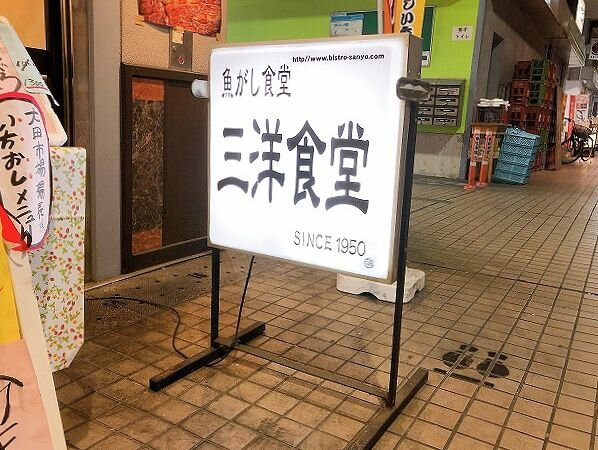 http://www.bistro-sanyo.com
魚がし食堂
三洋食堂
SINCE 1950
大田市場場長
いちおしメニュー